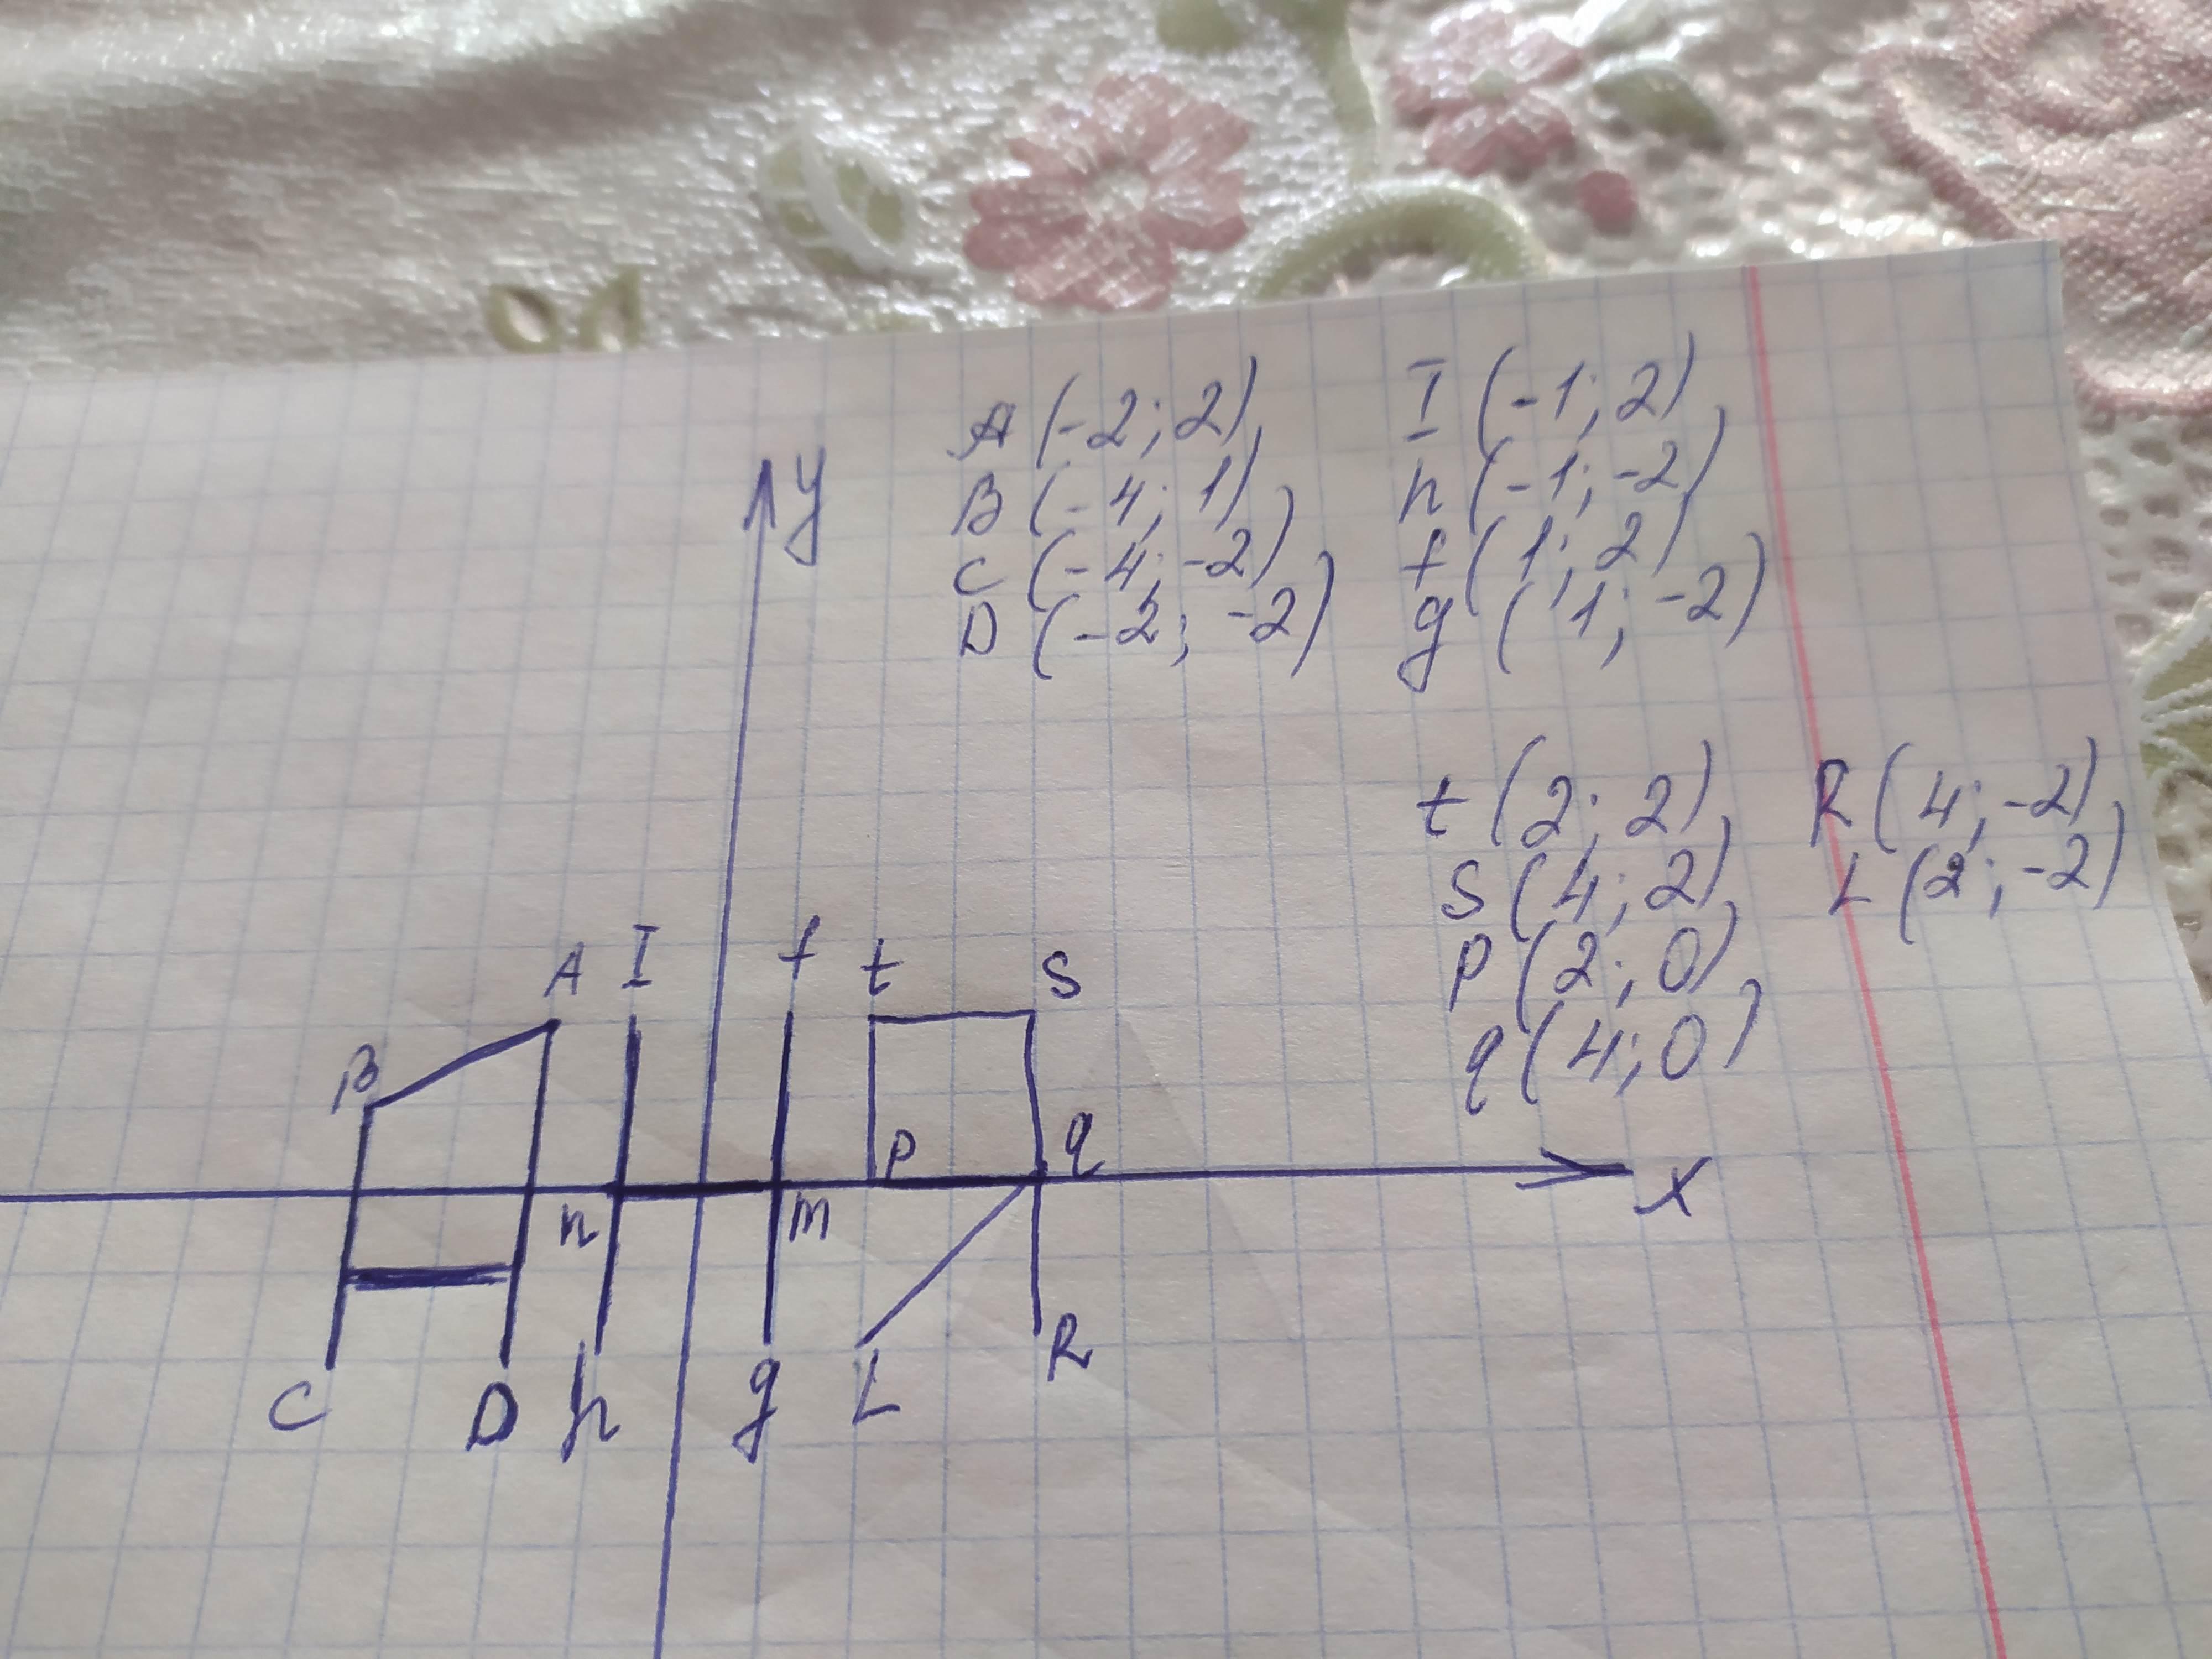 y
A (-2; 2), I (-1; 2),
B (-4; 1), h (-1; -2)
C (-4; -2), f (1; 2)
D (-2; -2) g (1; -2)
t (2; 2), R (4; -2),
S (4; 2), L (2; -2)
P (2; 0),
q (4; 0)
A I f t S
B
P q
n m x
C D h g L R